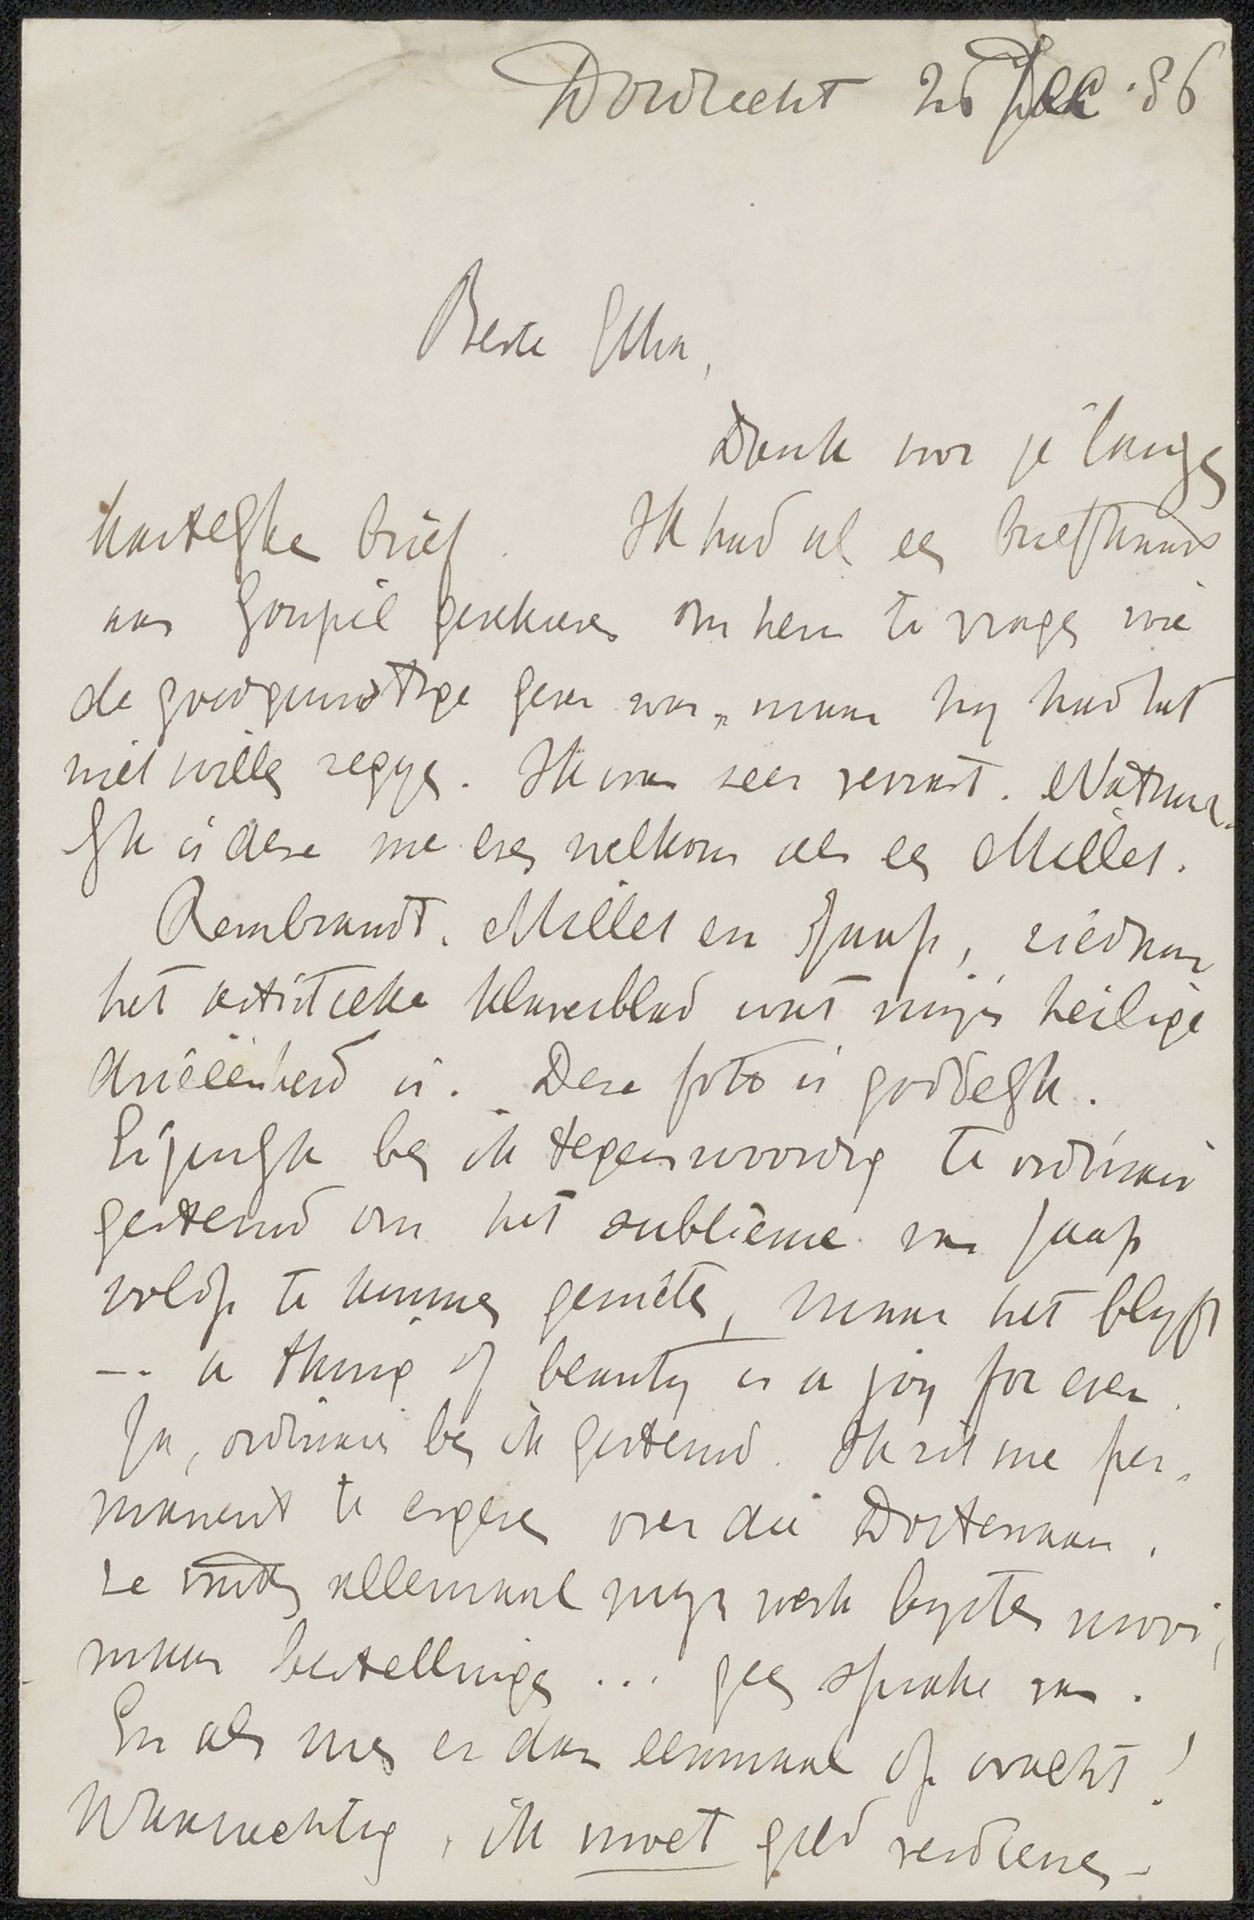 Dordrecht 26 Dec '86
Beste
Dank voor je lange
hartelijke brief. Ik had al een briefkaart
aan Goupil geschreven om hem te vragen wie
de goedgunstige gever was, maar hij had het
niet willen zeggen. Ik was zeer verrast. Natuur-
lijk is deze me even welkom als een Millet.
Rembrandt. Millet en Jaap, ziedaar
het artistieke klaverblad wat mijn heilige
drieëenheid is. Deze foto is goddelijk.
Eigenlijk ben ik tegenwoordig te ordinair
gestemd om het sublieme van Jaap
volop te kunnen genieten, maar het blijft
-- a thing of beauty is a joy for ever.
Ja, ordinair ben ik gestemd. Ik zit me per-
manent te ergeren over die Dortenaars.
ze vinden allemaal mijn werk byster mooi,
maar bestellingen ... geen sprake van.
En als men er dan eenmaal op wacht!
Waarachtig, ik moet geld verdienen -